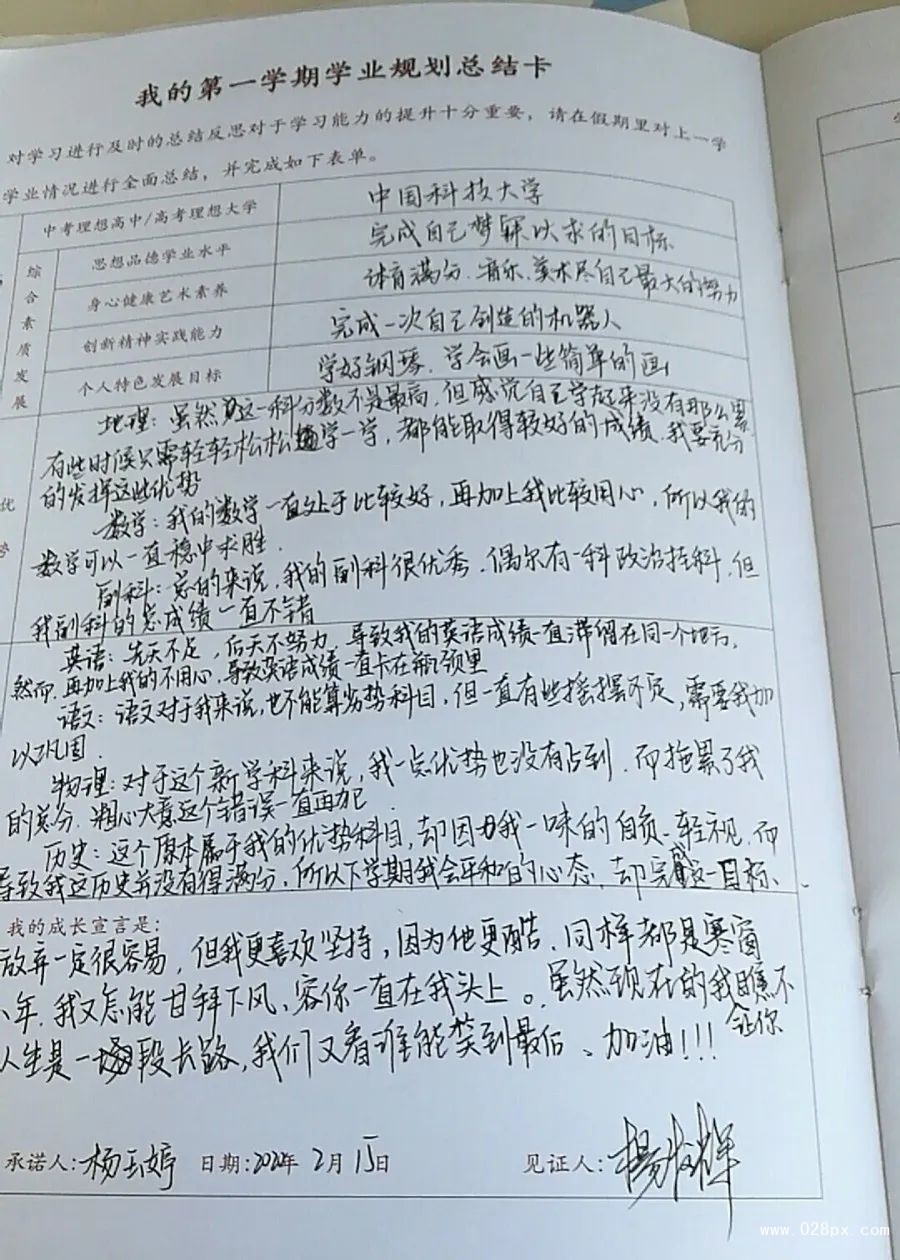 我的第一学期学业规划总结卡
对学习进行及时的总结反思对于学习能力的提升十分重要，请在假期里对上一学
学业情况进行全面总结，并完成如下表单。
中考理想高中/高考理想大学 中国科技大学
综合素质发展
思想品德学业水平 完成自己梦寐以求的目标
身心健康艺术素养 体育满分、音乐、美术尽自己最大的努力
创新精神实践能力 完成一次自己创造的机器人
个人特色发展目标 学好钢琴、学会画一些简单的画
优势
地理：虽然这一科分数不是最高，但感觉自己学起来没有那么累
有些时候只需轻轻松松学一学，都能取得较好的成绩，我要充分
的发挥这些优势
数学：我的数学一直处于比较好，再加上我比较用心，所以我的
数学可以一直稳中求胜．
副科：总的来说，我的副科很优秀．偶尔有一科政治挂科．但
我副科的总成绩一直不错
英语：先天不足，后天不努力，导致我的英语成绩一直滞留在同一个地方，
然而，再加上我的不用心，导致英语成绩一直卡在瓶颈里
语文：语文对于我来说，也不能算劣势科目，但一直有些摇摆不定，需要我加
以巩固．
物理：对于这个新学科来说，我一点优势也没有占到．而拖累了我
的总分．粗心大意这个错误一直再犯．
历史：这个原本属于我的优势科目，却因为我一味的自负、轻视，而
导致我这历史并没有得满分，所以下学期我会平和的心态，却完成这一目标、
我的成长宣言是：
放弃一定很容易，但我更喜欢坚持，因为他更酷．同样都是寒窗
年，我又怎能甘拜下风、容你一直在我头上。虽然现在的我瞧不
会让你
人生是一段长路，我们又看谁能笑到最后、加油！！！
承诺人：杨玉婷 日期：2020年 2月15日 见证人：
www.028px.com